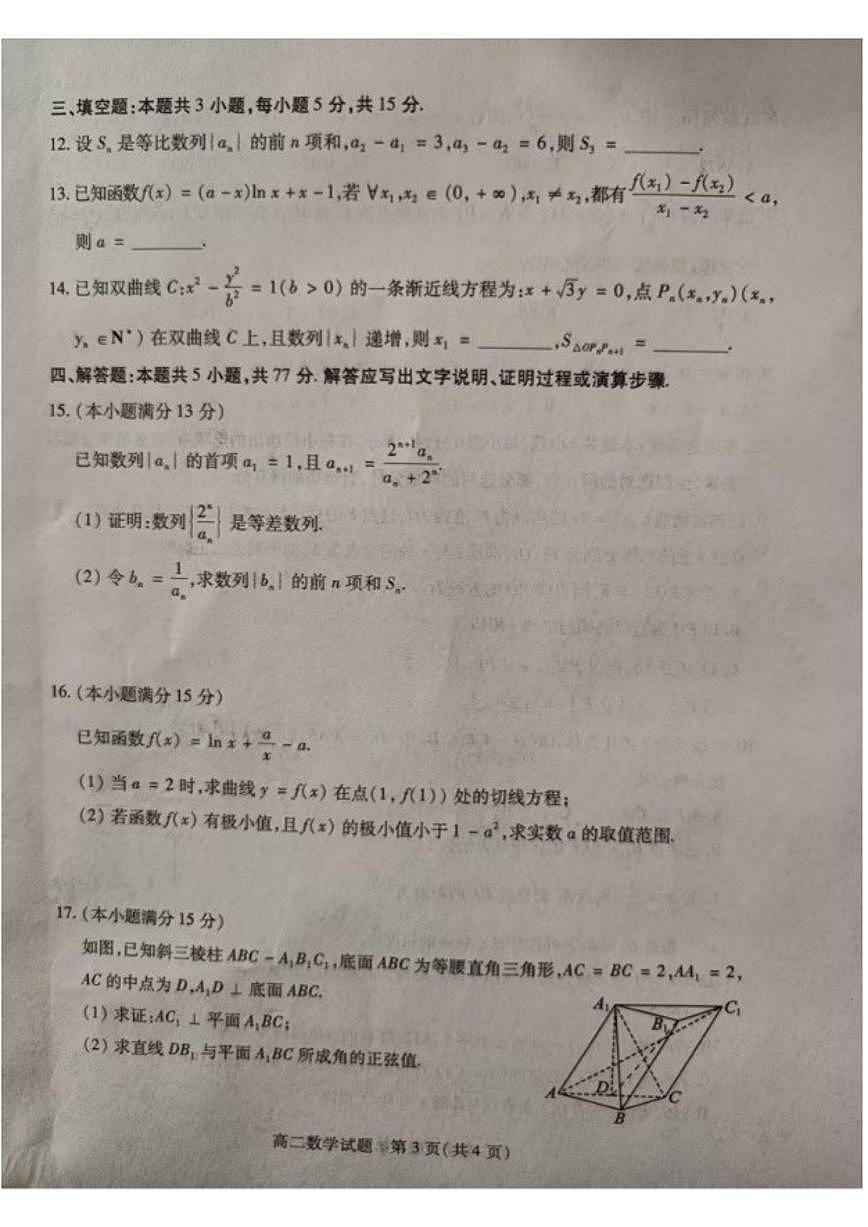 三、填空题:本题共 3 小题,每小题 5 分,共 15 分.
12. 设 Sₙ 是等比数列{aₙ} 的前 n 项和,a₂ - a₁ = 3,a₃ - a₂ = 6,则 S₃ = ________.
13. 已知函数f(x) = (a - x)ln x + x - 1,若 ∀x₁,x₂ ∈ (0, + ∞),x₁ ≠ x₂,都有 (f(x₁) - f(x₂))/(x₁ - x₂) < a,
则 a = ________.
14. 已知双曲线 C:x² - y²/b² = 1(b > 0) 的一条渐近线方程为:x + √3y = 0,点 Pₙ(xₙ,yₙ)(xₙ,
yₙ ∈N*) 在双曲线 C 上,且数列{xₙ} 递增,则 x₁ = ________,S△OPₙPₙ₊₁ = ________.
四、解答题:本题共 5 小题,共 77 分. 解答应写出文字说明、证明过程或演算步骤.
15. (本小题满分 13 分)
已知数列{aₙ} 的首项 a₁ = 1,且 aₙ₊₁ = 2ⁿ⁺¹aₙ/(aₙ + 2ⁿ).
(1) 证明:数列{2ⁿ/aₙ} 是等差数列.
(2) 令 bₙ = 1/aₙ,求数列{bₙ} 的前 n 项和 Sₙ.
16. (本小题满分 15 分)
已知函数f(x) = ln x + a/x - a.
(1) 当 a = 2 时,求曲线 y = f(x) 在点(1, f(1)) 处的切线方程;
(2) 若函数 f(x) 有极小值,且 f(x) 的极小值小于 1 - a²,求实数 a 的取值范围.
17. (本小题满分 15 分)
如图,已知斜三棱柱 ABC - A₁B₁C₁,底面 ABC 为等腰直角三角形,AC = BC = 2,AA₁ = 2,
AC 的中点为 D,A₁D ⊥ 底面 ABC.
(1) 求证:AC₁ ⊥ 平面 A₁BC;
(2) 求直线 DB₁ 与平面 A₁BC 所成角的正弦值.
A₁
C₁
B₁
A
D
C
B
高二数学试题 第 3 页(共 4 页)